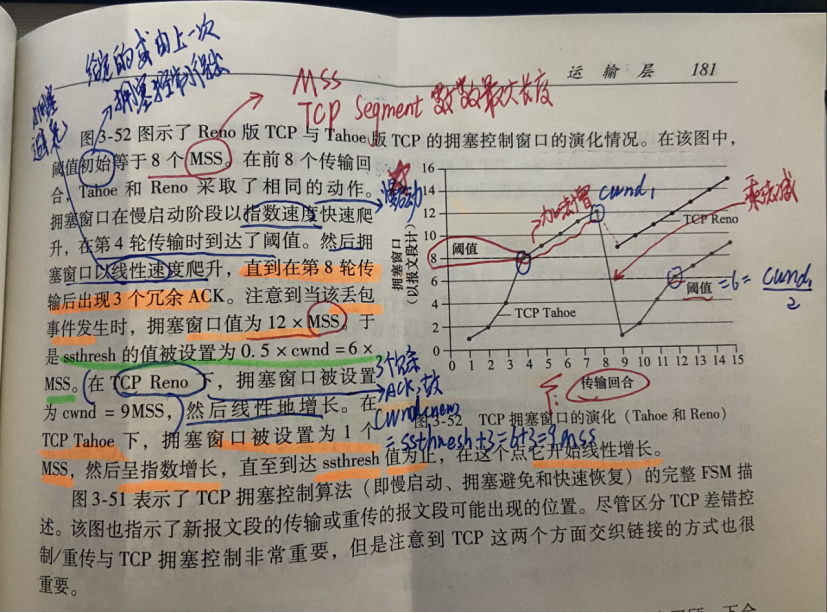 给定的或由上一次
拥塞控制得出
拥塞
避免
MSS
TCP Segment 数据最大长度
运输层 181
图3-52图示了Reno版TCP与Tahoe版TCP的拥塞控制窗口的演化情况。在该图中，
阈值初始等于8个MSS。在前8个传输回
合，Tahoe和Reno采取了相同的动作。
拥塞窗口在慢启动阶段以指数速度快速爬
升，在第4轮传输时到达了阈值。然后拥
塞窗口以线性速度爬升，直到在第8轮传
输后出现3个冗余ACK。注意到当该丢包
事件发生时，拥塞窗口值为12×MSS。于
是ssthresh的值被设置为0.5×cwnd=6×
MSS。在TCP Reno下，拥塞窗口被设置
为cwnd = 9MSS，然后线性地增长。在
TCP Tahoe下，拥塞窗口被设置为1个
MSS，然后呈指数增长，直至到达ssthresh值为止，在这个点它开始线性增长。
慢启动
加性增
cwnd1
乘法减
拥塞窗口
（以报文段计）
16
14
12
10
8
6
4
2
0
阈值
TCP Reno
TCP Tahoe
阈值
=6= cwnd1/2
0 1 2 3 4 5 6 7 8 9 10 11 12 13 14 15
传输回合
3个冗余
ACK,故
cwnd new
=ssthresh+3=6+3=9mss
图3-52 TCP拥塞窗口的演化（Tahoe和Reno）
图3-51表示了TCP拥塞控制算法（即慢启动、拥塞避免和快速恢复）的完整FSM描
述。该图也指示了新报文段的传输或重传的报文段可能出现的位置。尽管区分TCP差错控
制/重传与TCP拥塞控制非常重要，但是注意到TCP这两个方面交织链接的方式也很
重要。